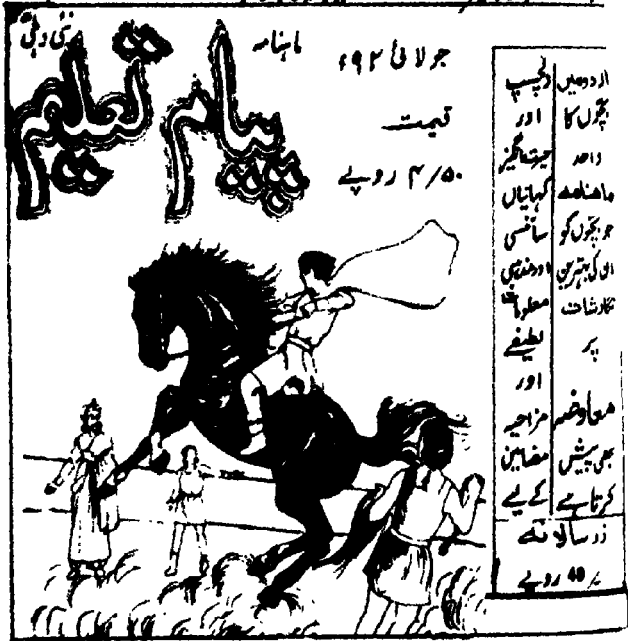 ماہنامہ
پیام تعلیم
نئی دہلی
جولائی ۹۲ء
قیمت
۴/۵۰ روپے
اردو میں
بچّوں کا
واحد
ماہنامہ
جو بچّوں کو
ان کی بہترین
نگارشات
پر
معاوضہ
بھی پیش
کرتا ہے
دلچسپ
اور
حیرت انگیز
کہانیاں
سائنسی
اور مذہبی
معلومات
لطیفے
اور
مزاحیہ
مضامین
کے لیے
زر سالانہ
40 روپے